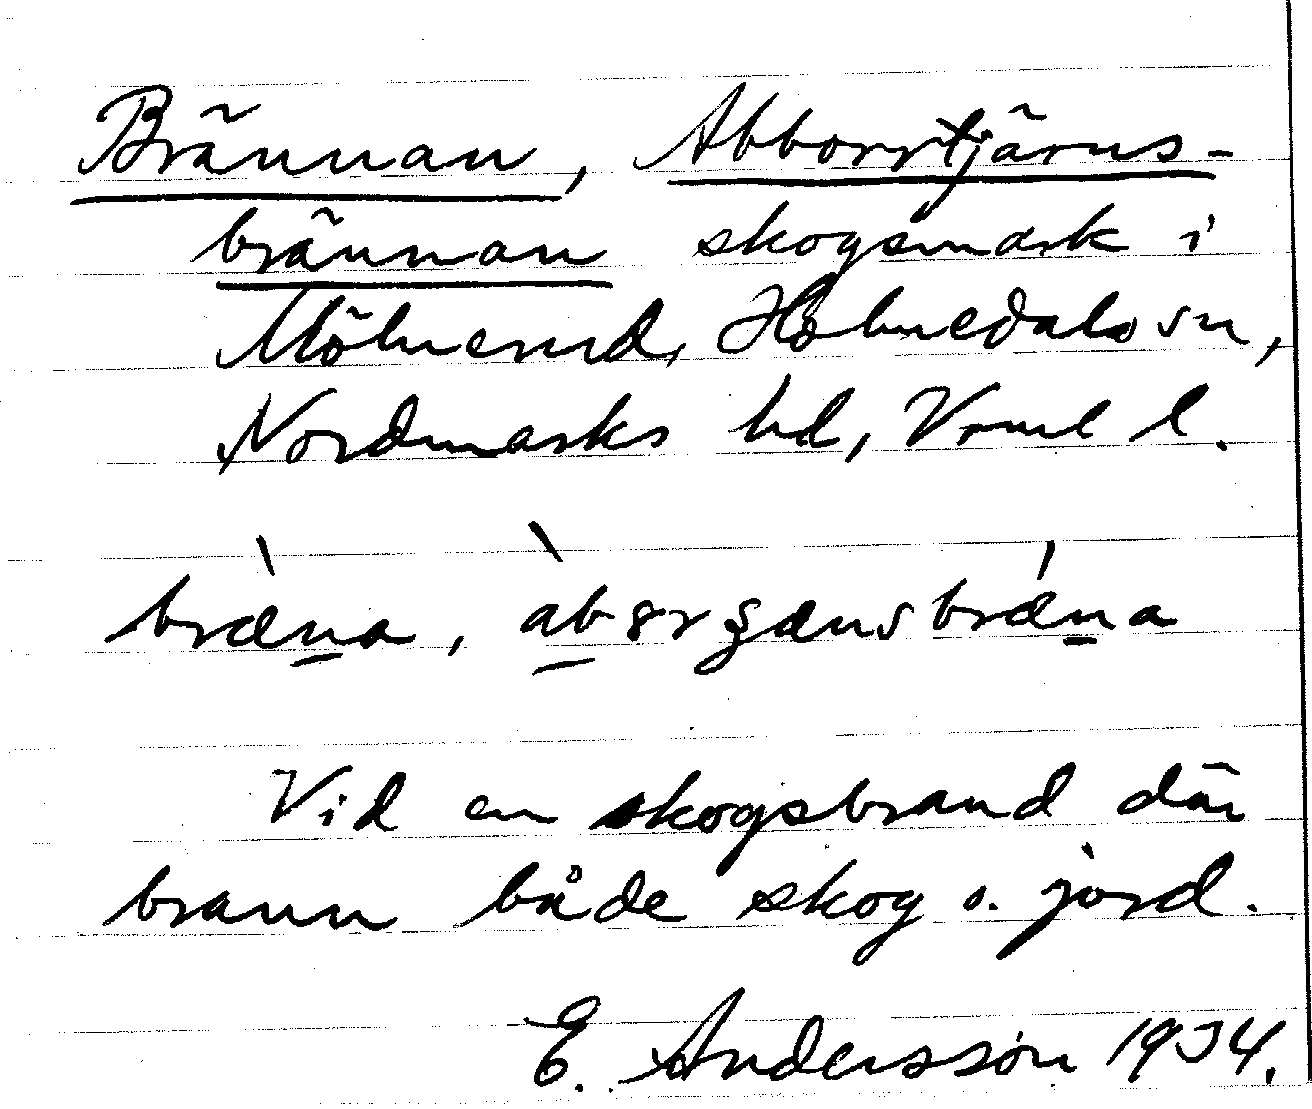 Brännan, Abborrtjärns-
brännan skogsmark i
Mölnerud, Holmedals sn,
Nordmarks hd, Vrml l.
Vid en skogsbrand där
brann både skog o. jord.
E. Andersson 1934.